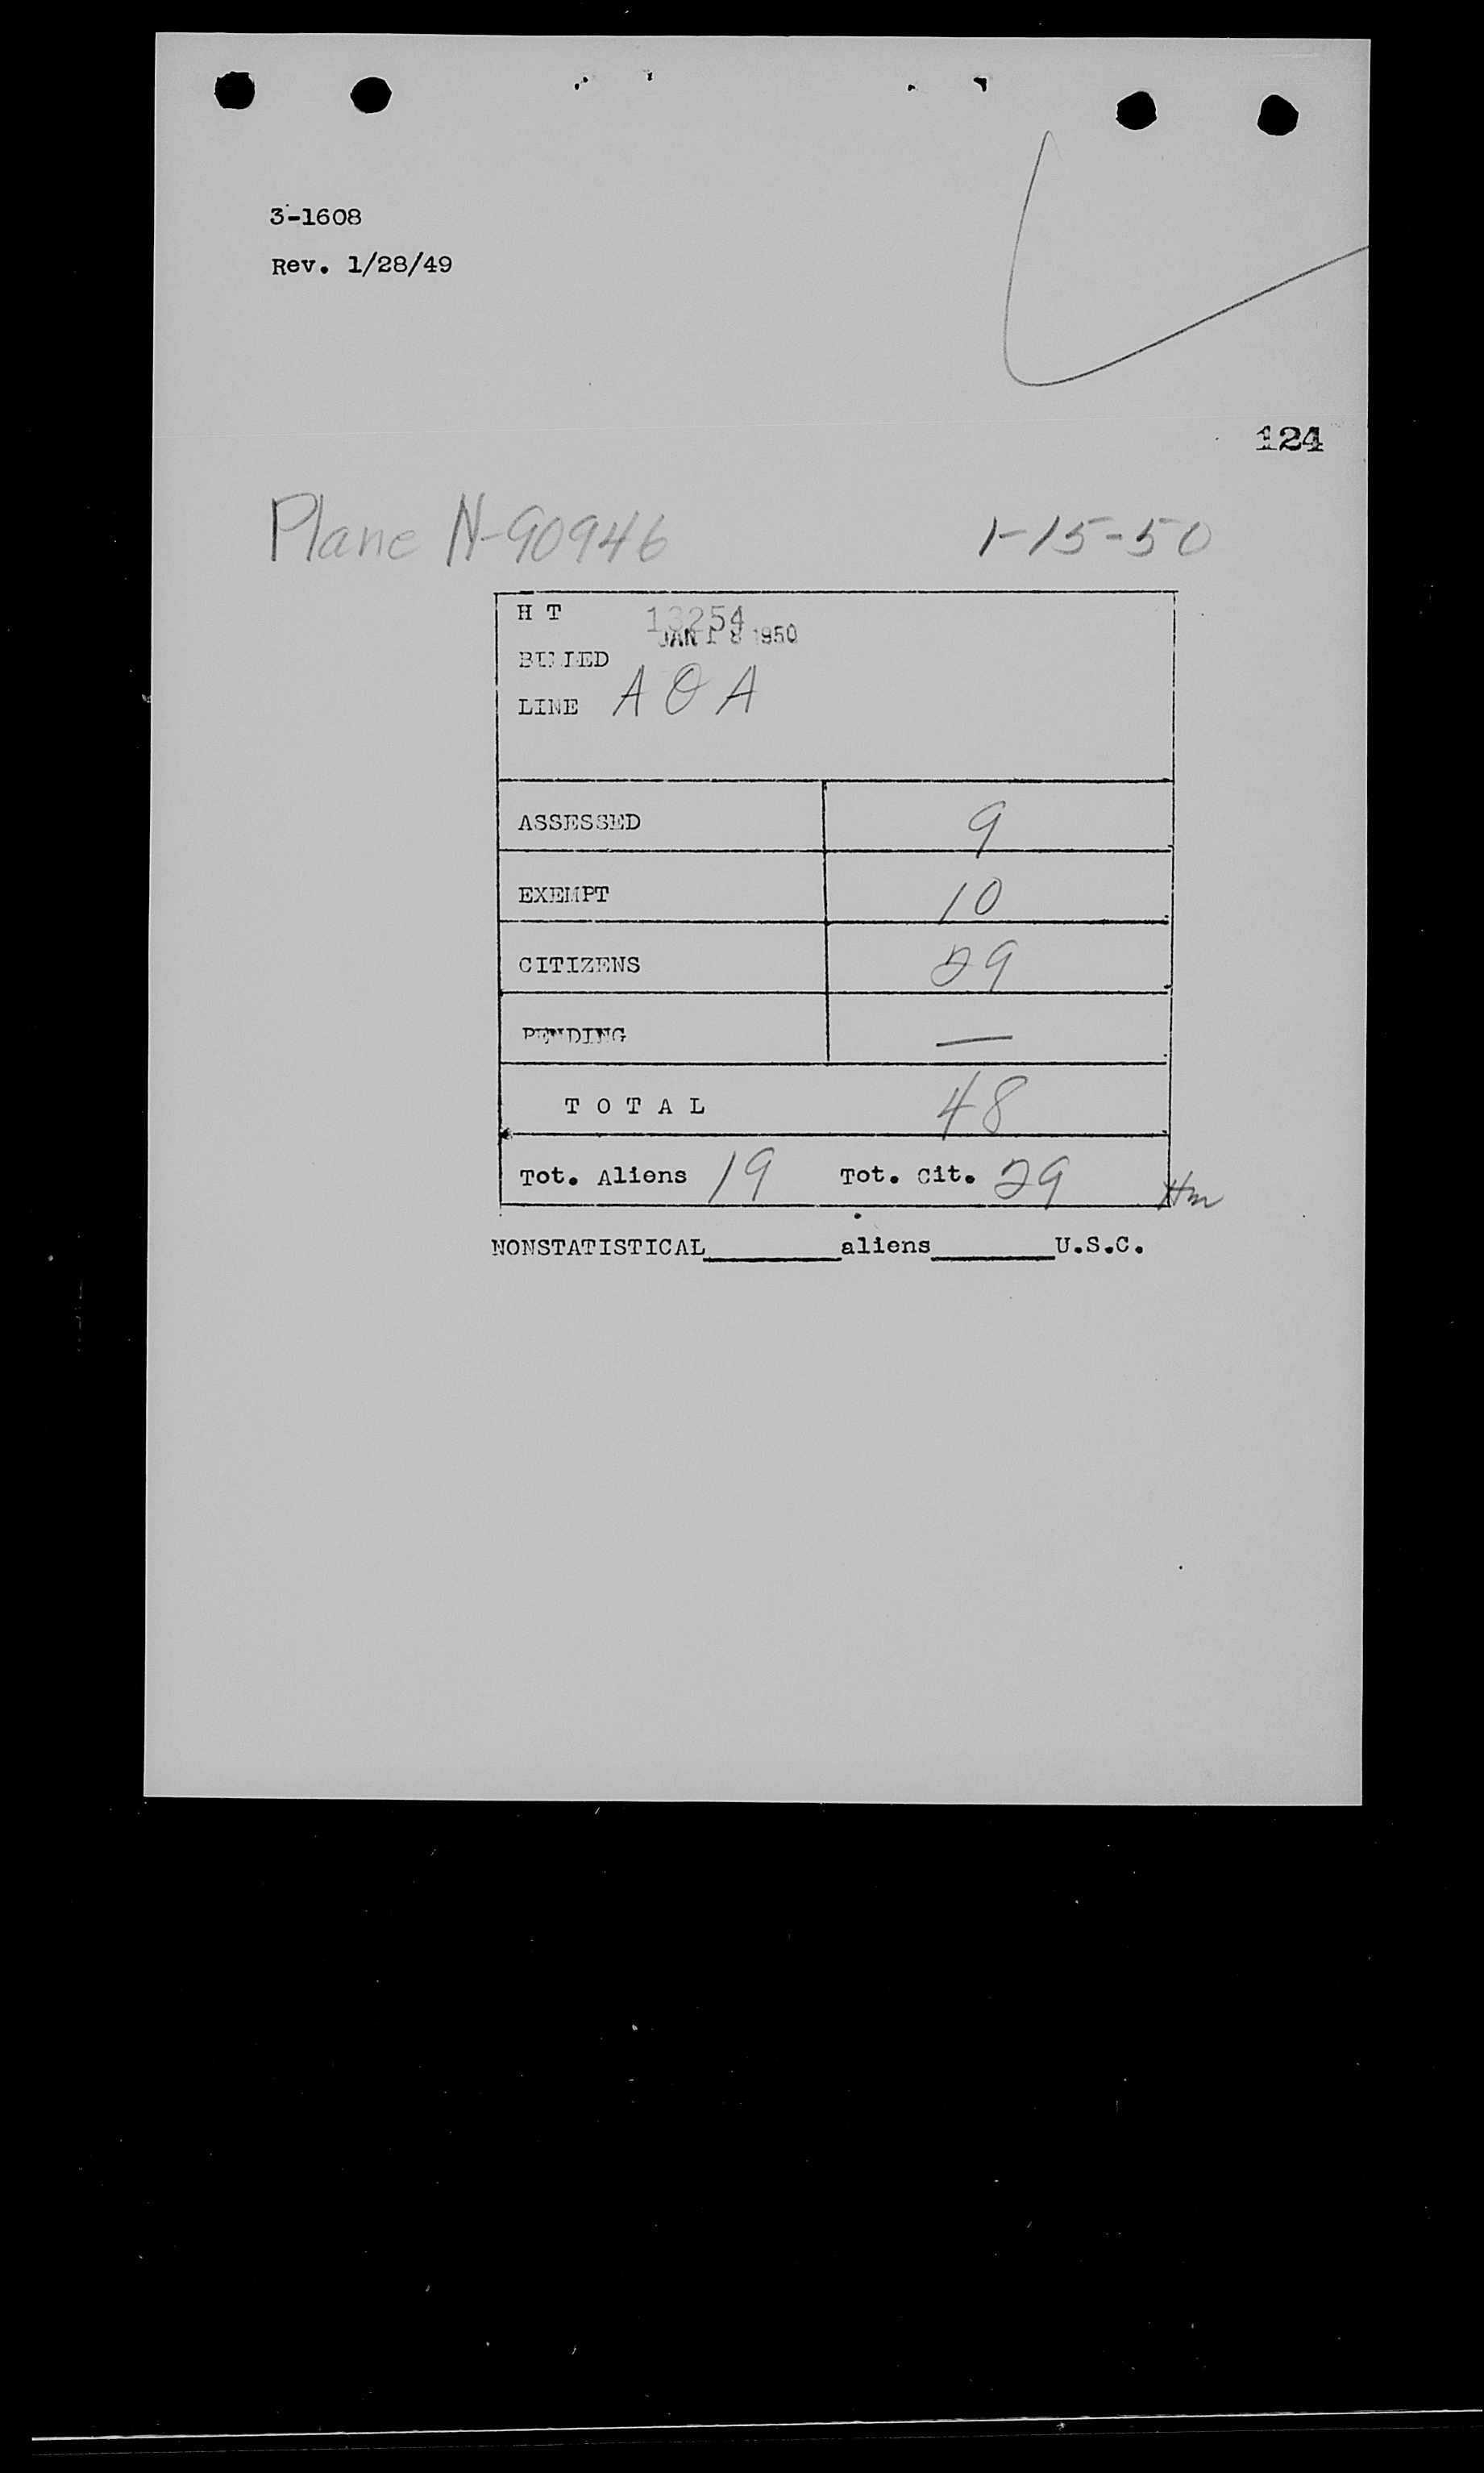 3-1608
Rev. 1/28/49
124
Plane N-90946 1-15-50
H T 13254
JAN 18 1950
BILLED
LINE A O A
ASSESSED 9
EXEMPT 10
CITIZENS 29
PENDING —
T O T A L 48
Tot. Aliens 19 Tot. Cit. 29 Hm
NONSTATISTICAL________aliens________U.S.C.